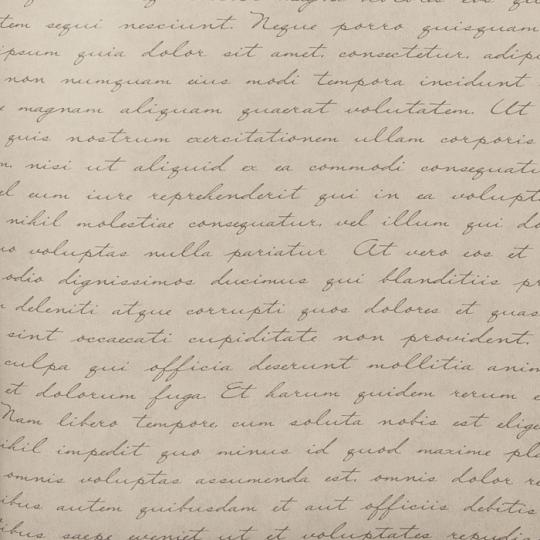 tem sequi nesciunt. Neque porro quisquam
ipsum quia dolor sit amet, consectetur, adipi
non numquam eius modi tempora incidunt
magnam aliquam quaerat volutatem. Ut
quis nostrum exercitationem ullam corporis
m, nisi ut aliquid ex ea commodi consequatu
el eum iure reprehenderit qui in ea volupt
nihil molestiae consequatur, vel illum qui do
uo voluptas nulla pariatur At vero eos et
odio dignissimos ducimus qui blanditiis pr
deleniti atque corrupti quos dolores et quas
sint occaecati cupiditate non provident,
culpa qui officia deserunt mollitia anim
et dolorum fuga. Et harum quidem rerum
Nam libero tempore, cum soluta nobis est elige
ihil impedit quo minus id quod maxime pla
omnis voluptas assumenda est, omnis dolor re
ibus autem quibusdam et aut officiis debitis
ibus saepe eveniet ut et voluptates repudia